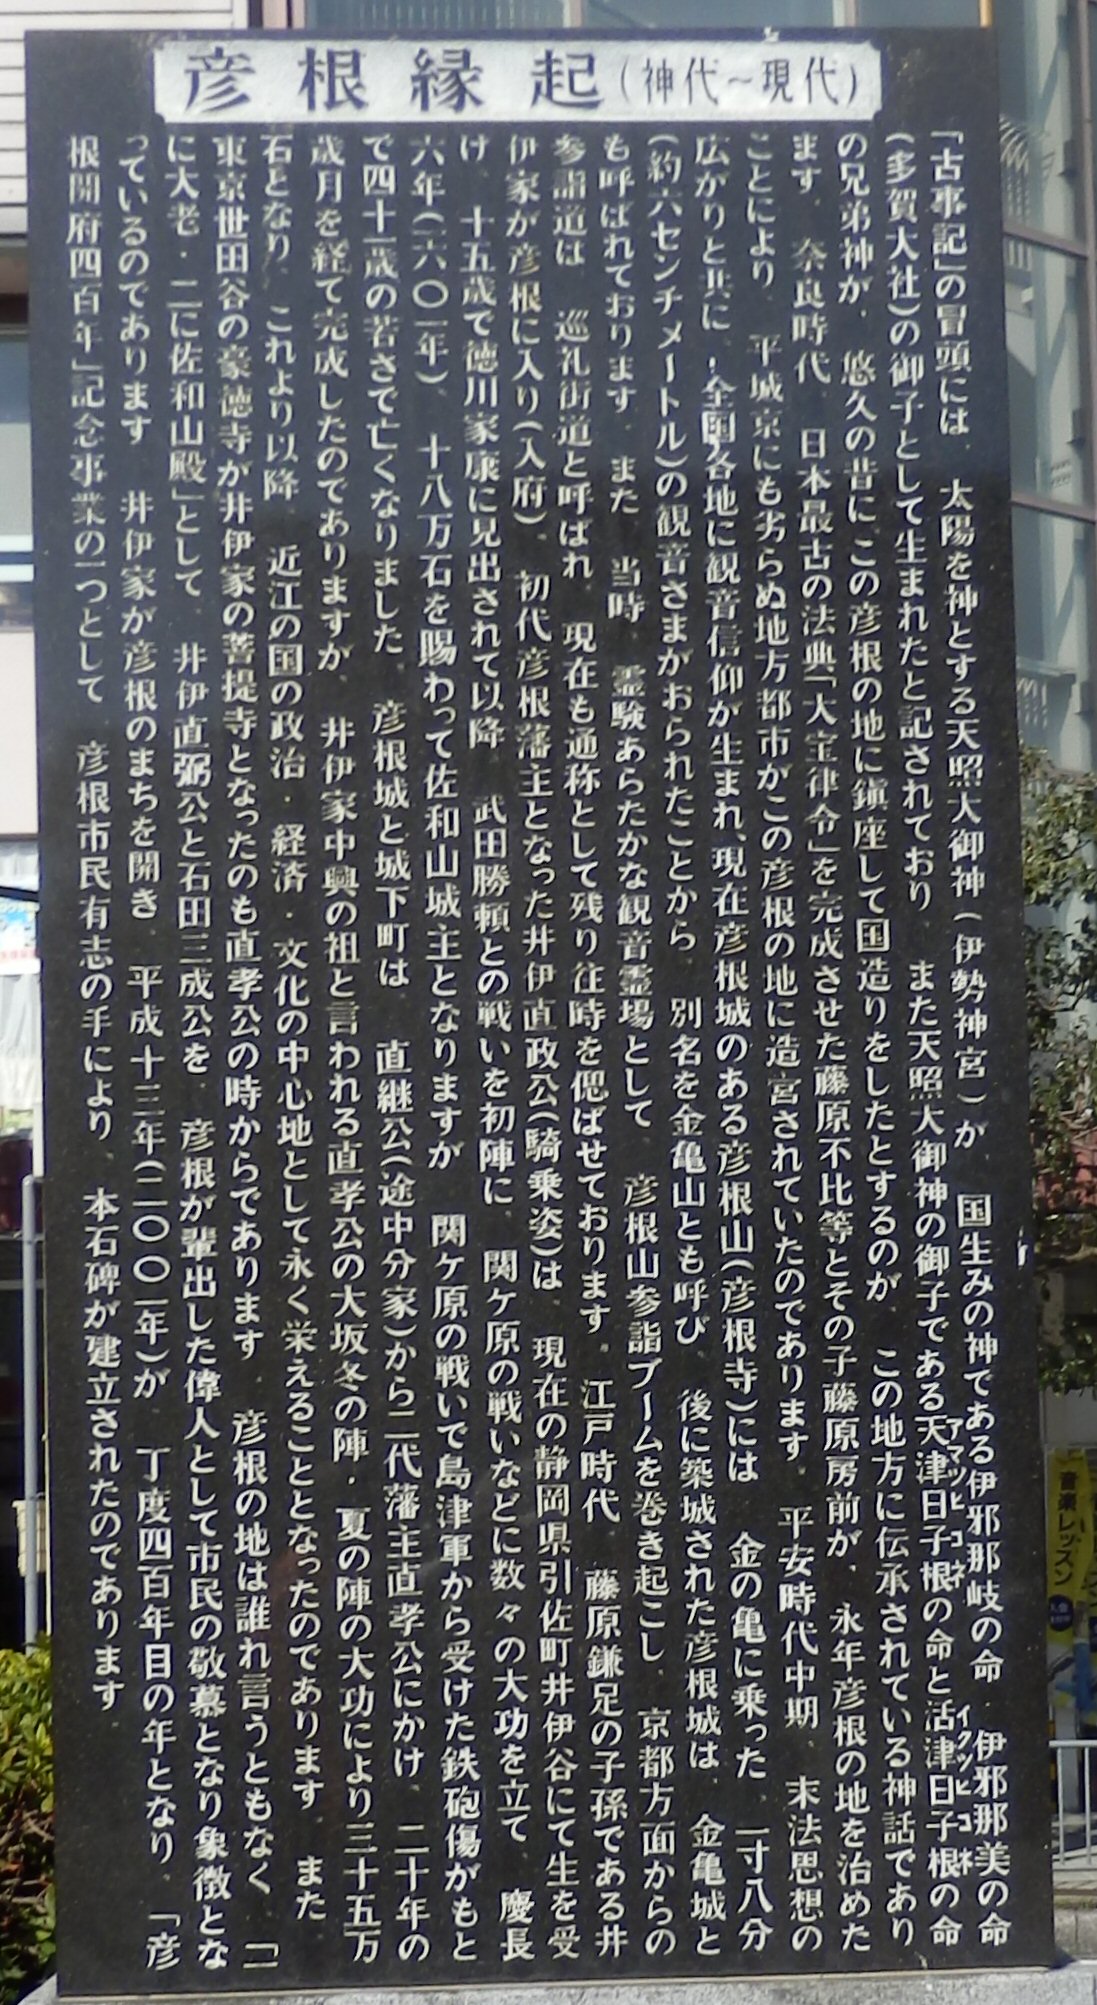 彦根縁起(神代～現代)
「古事記」の冒頭には、太陽を神とする天照大御神(伊勢神宮)が、国生みの神である伊邪那岐の命、伊邪那美の命
(多賀大社)の御子として生まれたと記されており、また天照大御神の御子である天津日子根の命と活津日子根の命
アマツヒコネ
イクツヒコネ
の兄弟神が、悠久の昔に、この彦根の地に鎮座して国造りをしたとするのが、この地方に伝承されている神話であり
ます。奈良時代、日本最古の法典「大宝律令」を完成させた藤原不比等とその子藤原房前が、永年彦根の地を治めた
ことにより、平城京にも劣らぬ地方都市がこの彦根の地に造宮されていたのであります。平安時代中期、末法思想の
広がりと共に、全国各地に観音信仰が生まれ、現在彦根城のある彦根山(彦根寺)には、金の亀に乗った、一寸八分
(約六センチメートル)の観音さまがおられたことから、別名を金亀山とも呼び、後に築城された彦根城は、金亀城と
も呼ばれております。また、当時、霊験あらたかな観音霊場として、彦根山参詣ブームを巻き起こし、京都方面からの
参詣道は、巡礼街道と呼ばれ、現在も通称として残り往時を偲ばせております。江戸時代、藤原鎌足の子孫である井
伊家が彦根に入り(入府)、初代彦根藩主となった井伊直政公(騎乗姿)は、現在の静岡県引佐町井伊谷にて生を受
け、十五歳で徳川家康に見出されて以降、武田勝頼との戦いを初陣に、関ケ原の戦いなどに数々の大功を立て、慶長
六年(一六〇一年)、十八万石を賜わって佐和山城主となりますが、関ケ原の戦いで島津軍から受けた鉄砲傷がもと
で四十一歳の若さで亡くなりました。彦根城と城下町は、直継公(途中分家)から二代藩主直孝公にかけ、二十年の
歳月を経て完成したのでありますが、井伊家中興の祖と言われる直孝公の大坂冬の陣・夏の陣の大功により三十五万
石となり、これより以降、近江の国の政治・経済・文化の中心地として永く栄えることとなったのであります。また
東京世田谷の豪徳寺が井伊家の菩提寺となったのも直孝公の時からであります。彦根の地は誰れ言うともなく、「一
に大老・二に佐和山殿」として、井伊直弼公と石田三成公を、彦根が輩出した偉人として市民の敬慕となり象徴とな
っているのであります。井伊家が彦根のまちを開き、平成十三年(二〇〇一年)が、丁度四百年目の年となり、「彦
根開府四百年」記念事業の一つとして、彦根市民有志の手により、本石碑が建立されたのであります。
音楽レッスン